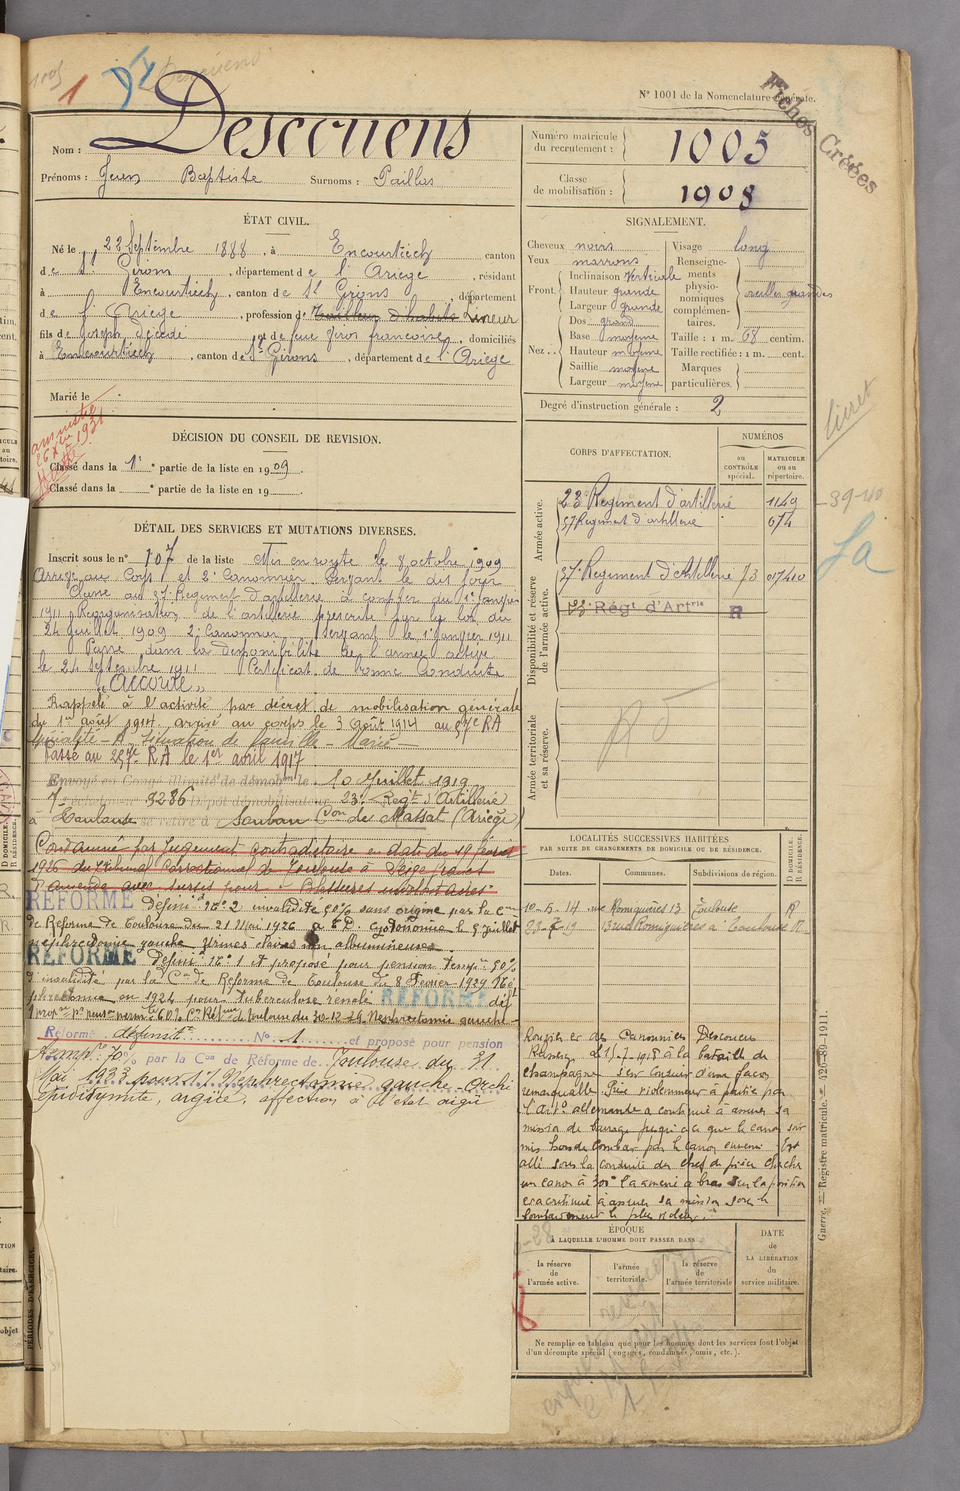 1
Descouens
N° 1001 de la Nomenclature Générale.
Fiches Créées
Nom : Descouens
Prénoms : Jean Baptiste Surnoms : Paillas
Numéro matricule du recrutement : 1005
Classe de mobilisation : 1908
ÉTAT CIVIL.
Né le 22 Septembre 1888, à Encourtiech canton
de St Girons, département de l'Ariège, résidant
à Encourtiech, canton de St Girons, département
de l'Ariège, profession de Tailleur d'habits Livreur
fils de Joseph décédé et de feue Jiros françoise, domiciliés
à Encourtiech, canton de St Girons, département de l'Ariège
Marié le
SIGNALEMENT.
Cheveux noirs
Yeux marrons
Front. Inclinaison Verticale
Hauteur grande
Largeur grande
Nez. Dos grand
Base moyenne
Hauteur moyenne
Saillie moyenne
Largeur moyenne
Visage long
Renseignements physionomiques complémentaires. oreilles grandes
Taille : 1 m. 68 centim.
Taille rectifiée : 1 m. cent.
Marques particulières.
Degré d'instruction générale : 2
livret
amnistié
1931
DÉCISION DU CONSEIL DE REVISION.
Classé dans la 1e partie de la liste en 1909
Classé dans la e partie de la liste en 19
DÉTAIL DES SERVICES ET MUTATIONS DIVERSES.
Inscrit sous le n° 107 de la liste Mis en route le 8 octobre 1909
Arrivé au Corps et 2e Canonnier Servant le dit jour
Classé au 57e Régiment d'artillerie à compter du 1e janvier
1911 Réorganisation de l'artillerie prescrite par la loi du
24 juillet 1909 2e Canonnier Servant le 1e janvier 1911
Passé dans la disponibilité de l'armée active
le 24 Septembre 1911 Certificat de bonne Conduite
"Accordé"
Rappelé à l'activité par décret de mobilisation générale
du 1er août 1914. arrivé au corps le 3 août 1914 au 57e RA
Situation de famille - Marié -
Passé au 257e RA le 1er avril 1917
Envoyé en Congé illimité de démobon le 10 Juillet 1919
7e échelon n° 9286 Dépôt démobilisateur 23e Regt d'Artillerie
à Toulouse se retire à Soulan Con de Massat (Ariège)
Condamné par jugement contradictoire en date du 19
1926 du Tribunal Correctionnel de Toulouse à Seize francs
d'amende avec sursis pour : Blessures involontaires
RÉFORMÉ Définif n° 2 invalidité 50% sans origine par la Con
de Réforme de Toulouse du 21 Mai 1926
néphrectomie gauche urines claires non albumineuses.
RÉFORMÉ Définif n° 1 et proposé pour pension Tempre 50%
d'invalidité par la Con de Réforme de Toulouse du 8 Février 1929
en 1924 pour tuberculose rénale RÉFORMÉ déft
1 60% Con Réforme de Toulouse du 30-12-29 Néphrectomie gauche
Réformé définitif N° 1 et proposé pour pension
70% par la Con de Réforme de Toulouse du 31
Mai 1933 pour : 1° Néphrectomie gauche - Orchi
épididymite, affection à l'état aigu
CORPS D'AFFECTATION.
NUMÉROS
au CONTRÔLE spécial.
MATRICULE ou au répertoire.
Armée active.
23e Régiment d'artillerie 1149
57 Régiment d'artillerie 674
39-40
Disponibilité et réserve de l'armée active.
57e Régiment d'Artillerie 73 017410
Régt d'Artrie R
Armée territoriale et sa réserve.
LOCALITÉS SUCCESSIVES HABITÉES
PAR SUITE DE CHANGEMENTS DE DOMICILE OU DE RÉSIDENCE.
Dates. Communes. Subdivisions de région. D DOMICILE. R RÉSIDENCE.
10-5-14 rue Romiguières 13 Toulouse R
23-7-19 13 rue Romiguières à Toulouse R
des Canonniers Descouens
le 15-7-1918 à la bataille de
Champagne s'est conduit d'une façon
remarquable. Pris violemment à partie par
l'artie allemande a continué à assurer sa
mission de barrage jusqu'à ce que le canon soit
mis hors de combat par le canon ennemi Est
allé sous la conduite du chef de pièce chercher
un canon à 300 m l'a amené à bras sur la position
et a continué à assurer sa mission sous le
bombardement le plus violent.
ÉPOQUE
À LAQUELLE L'HOMME DOIT PASSER DANS
la réserve de l'armée active.
l'armée territoriale.
la réserve de l'armée territoriale
DATE de LA LIBÉRATION du service militaire.
Ne remplir ce tableau que pour les hommes dont les services font l'objet
d'un décompte spécial (engagés, condamnés, omis, etc.).
Guerre. — Registre matricule. — 426-89-1911.
PÉRIODES D'EXERCICES.